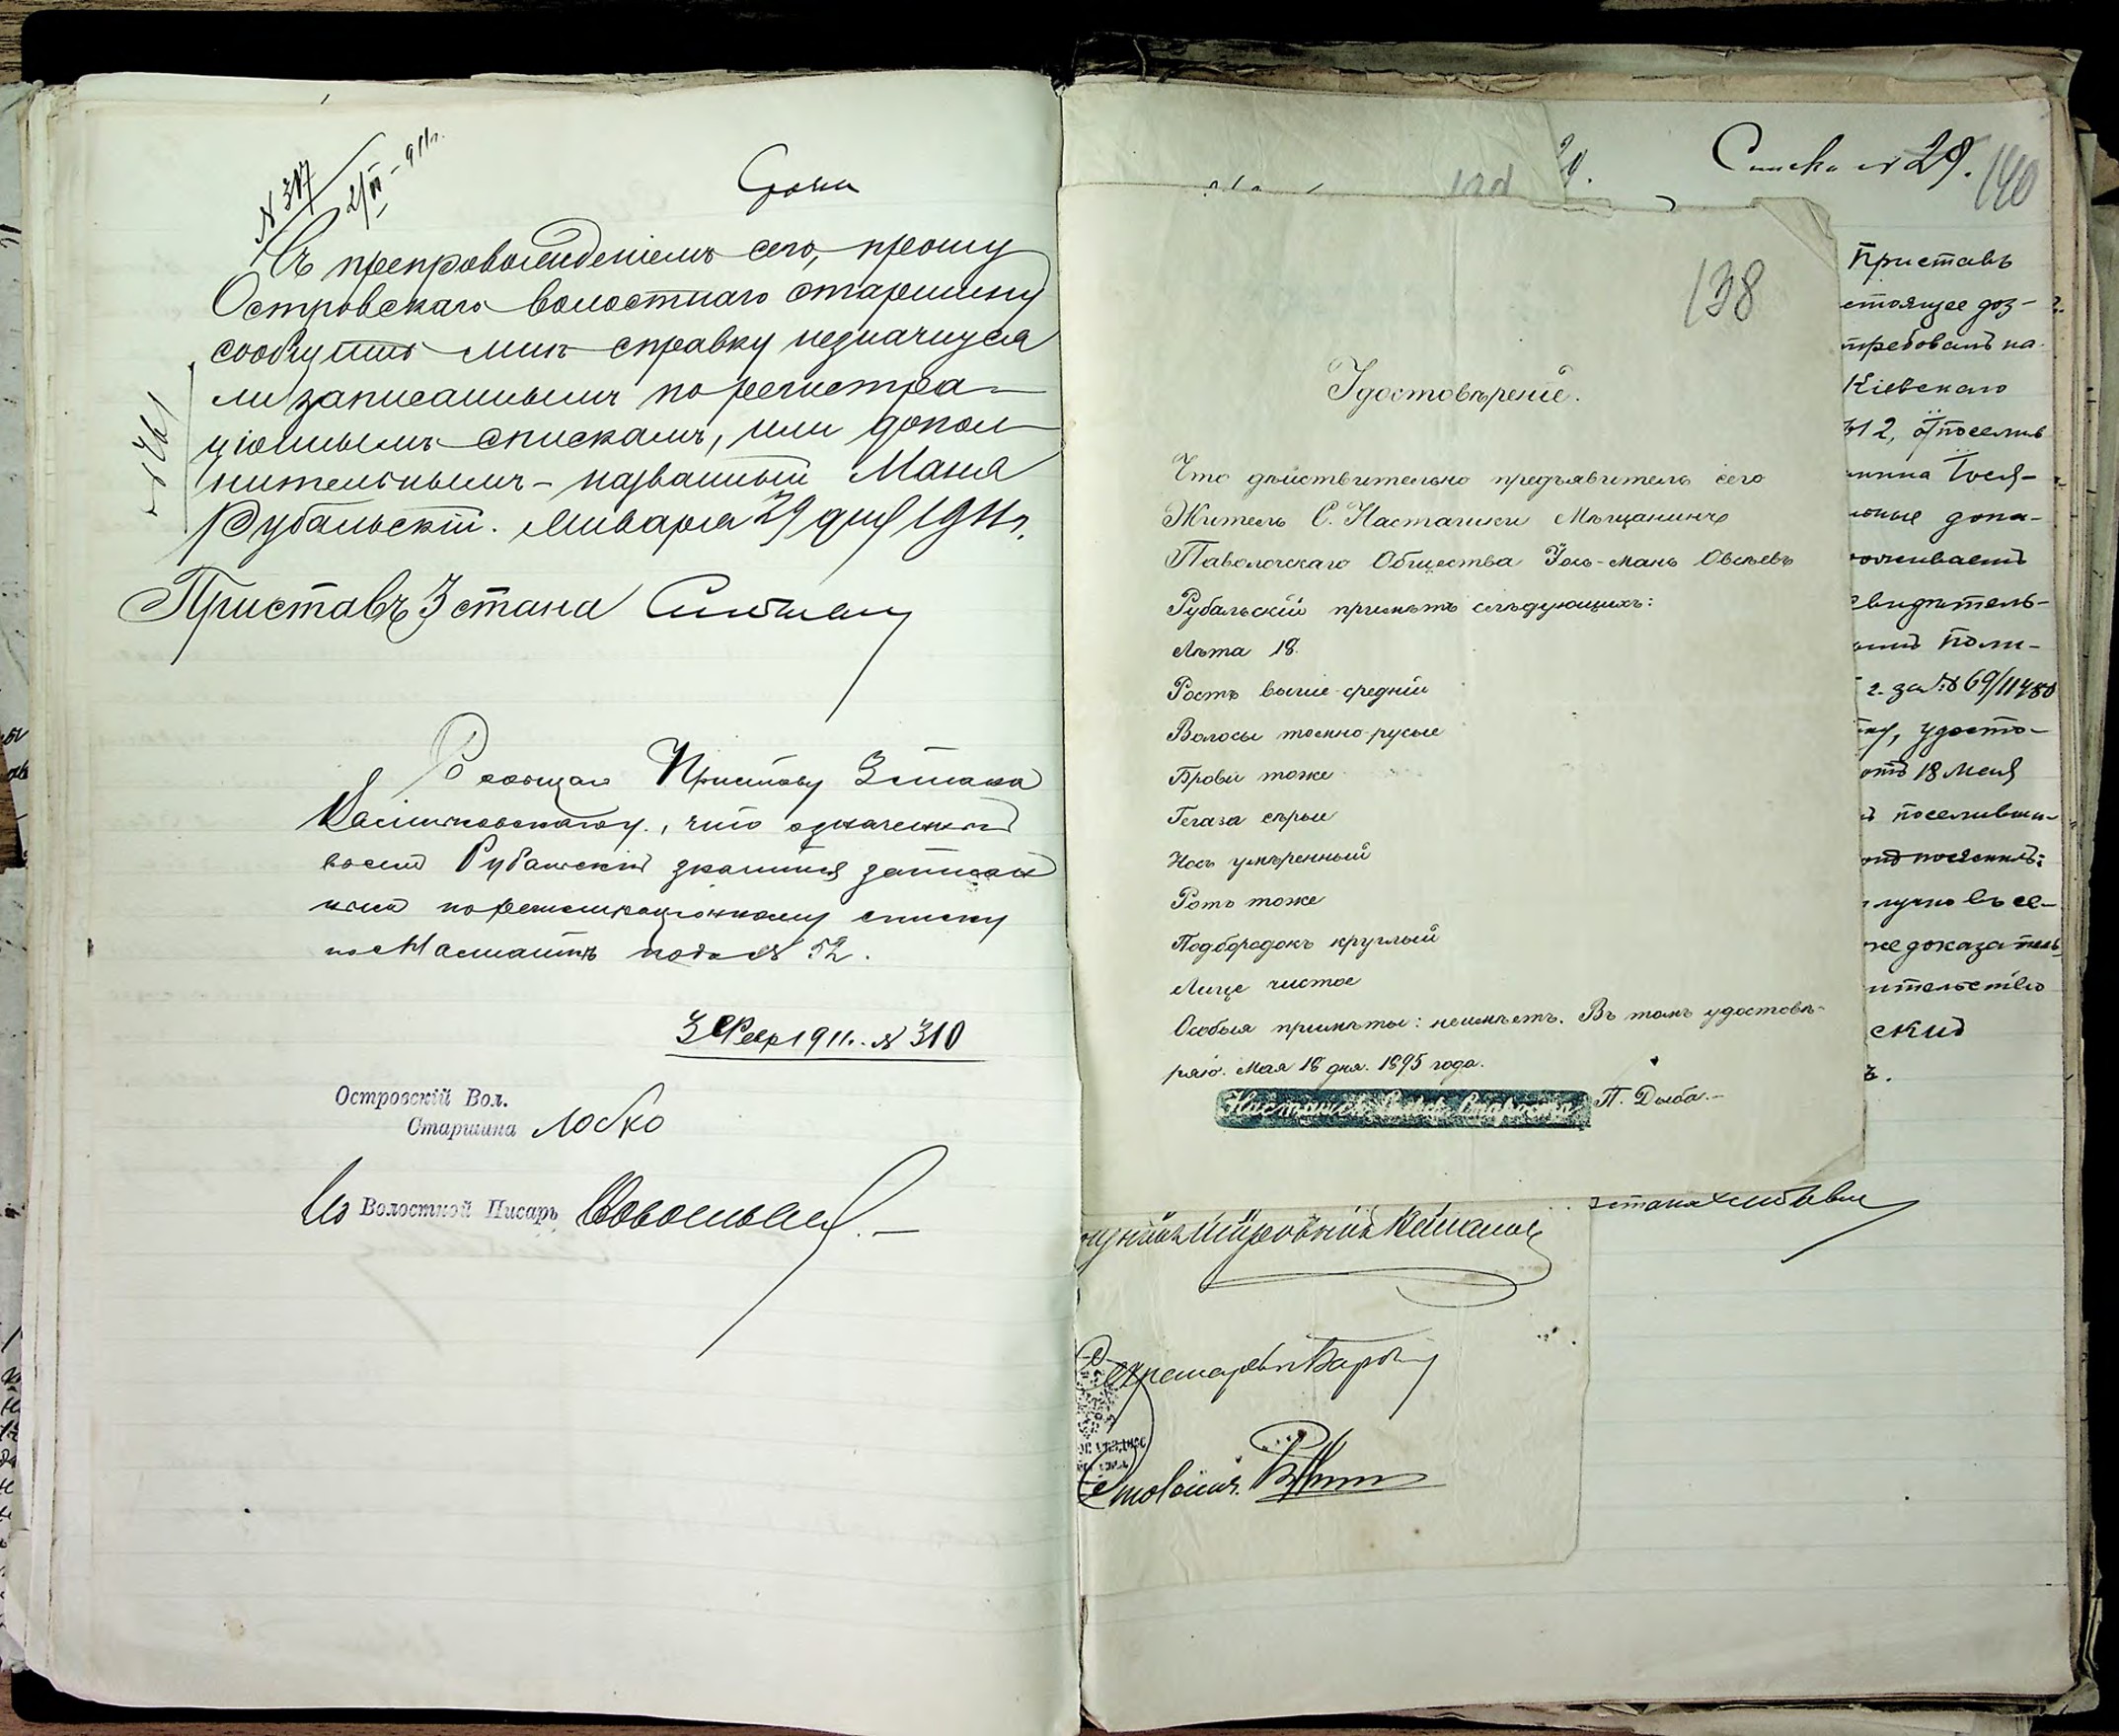 N 317
2/II - 911 г.
Срочно
Съ препровожденіемъ сего, прошу
Островскаго волостнаго старшину
сообщить мнѣ справку незначуся
ли записаннымъ по регистра-
ціоннымъ спискамъ, или допол-
нительнымъ - названный Маня
Рубальскій. Января 29 дня 1911 г.
№ 461
Приставъ 3 стана
Сообщаю Приставу 3 стана
Васильковскаго у., что означенный
Рубальскій значится записан
нымъ по регистраціонному списку
по Насташкѣ подъ № 52.
3 Февр 1911 г. № 310
Островскій Вол.
Старшина Лобко
Из Волостной Писарь
Списка № 29.
140
138
Удостовѣреніе.
Что дѣйствительно предъявитель сего
Житель С. Насташки Мѣщанинъ
Паволочскаго Общества Іось-Мань Овсѣевъ
Рубальскій примѣтъ слѣдующихъ:
Лѣта 18.
Ростъ выше-средній
Волосы темно-русые
Брови тоже
Глаза сѣрые
Носъ умѣренный
Ротъ тоже
Подбородокъ круглый
Лице чистое
Особыя примѣты: неимѣетъ. Въ томъ удостовѣ-
ряю. Мая 18 дня. 1895 года.
Насташск. Сельск. Староста П. Дыба.-
Приставъ
стоящее доз-
требовалъ на
Кіевскаго
12, о поселив
Іося-
ные дока-
живаетъ
свидѣтель-
Поли-
г. за № 69/11480
удосто-
отъ 18 Мая
поселивши-
лично въ се-
же доказатель
ительство
скій
стана
Секретарь